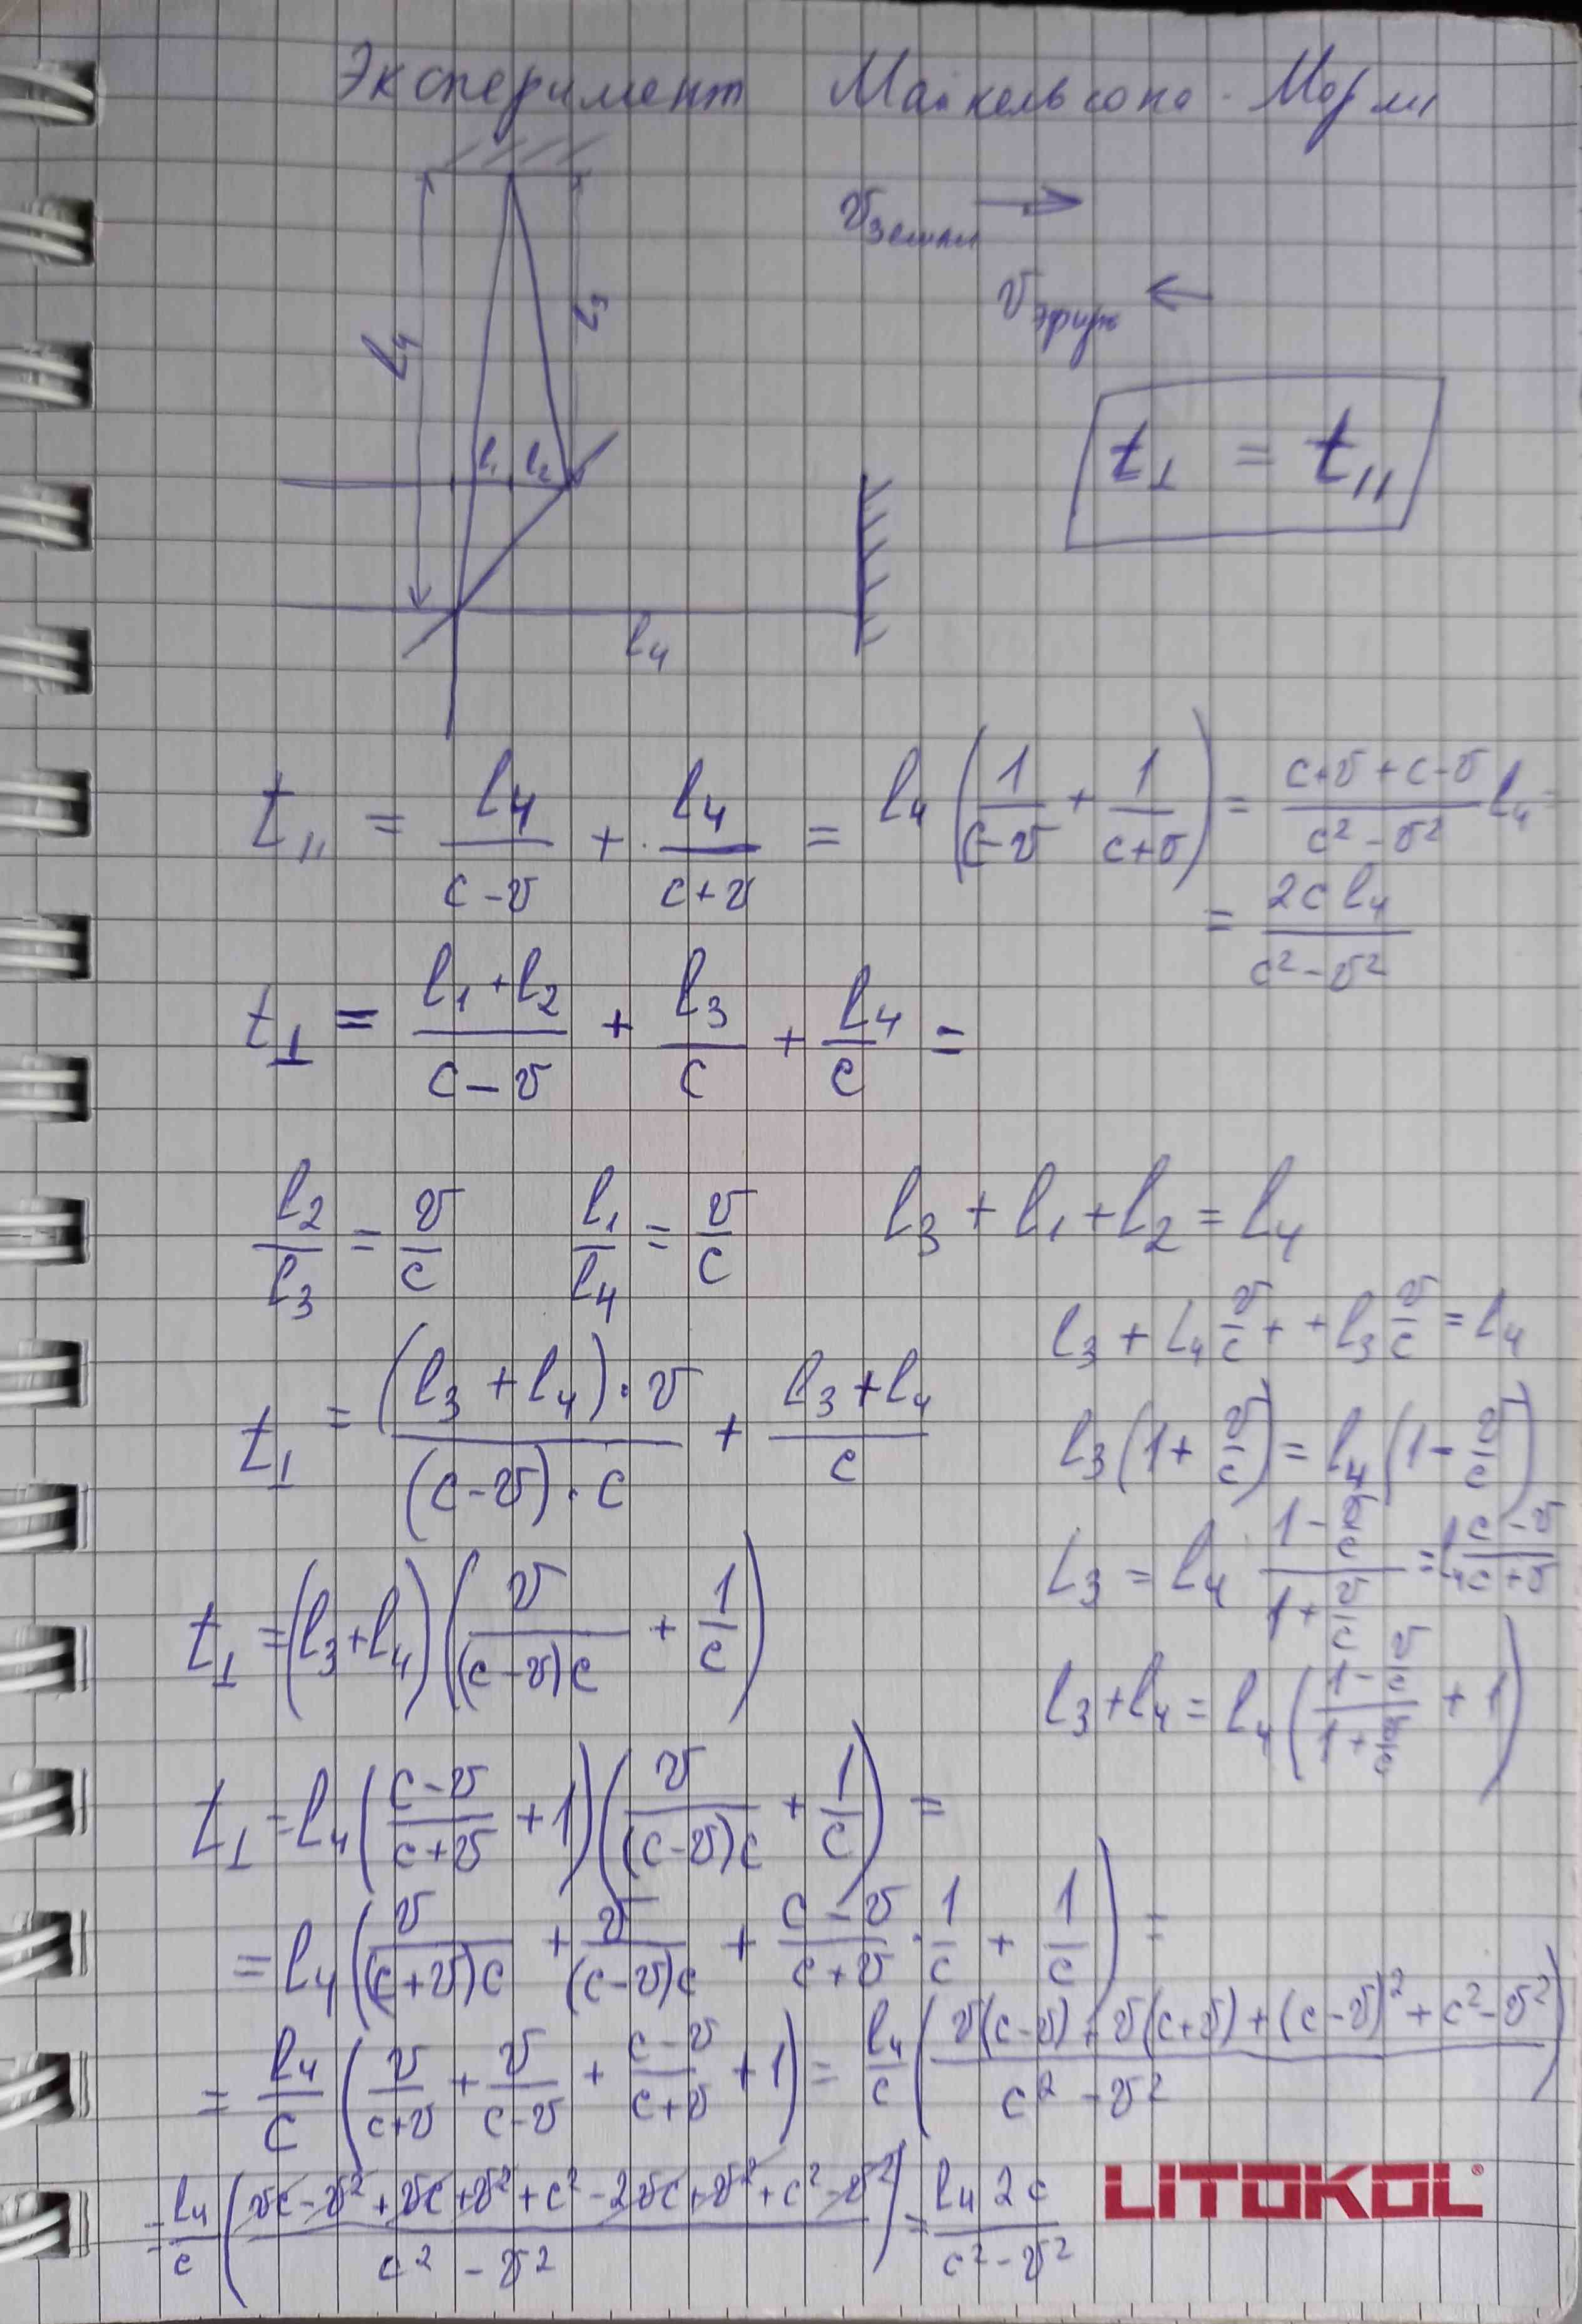 Эксперимент Майкельсона-Морли
v Земли →
v эфира ←
t⊥ = t||
l₄
l₃
l₁ l₂
l₄
t|| = l₄/(c-v) + l₄/(c+v) = l₄(1/(c-v) + 1/(c+v)) = (c+v+c-v)/(c²-v²) l₄ =
= 2cl₄/(c²-v²)
t⊥ = (l₁+l₂)/(c-v) + l₃/c + l₄/c =
l₂/l₃ = v/c l₁/l₄ = v/c l₃ + l₁ + l₂ = l₄
l₃ + l₄ v/c + + l₃ v/c = l₄
t⊥ = (l₃+l₄)·v/((c-v)·c) + (l₃+l₄)/c
l₃(1 + v/c) = l₄(1 - v/c)
l₃ = l₄ (1 - v/c)/(1 + v/c) = l₄ (c-v)/(c+v)
t⊥ = (l₃+l₄)(v/((c-v)c) + 1/c)
l₃+l₄ = l₄((1 - v/c)/(1 + v/c) + 1)
t⊥ = l₄((c-v)/(c+v) + 1)(v/((c-v)c) + 1/c) =
= l₄(v/((c+v)c) + v/((c-v)c) + (c-v)/(c+v) · 1/c + 1/c) =
= l₄/c (v/(c+v) + v/(c-v) + (c-v)/(c+v) + 1) = l₄/c ((v(c-v) + v(c+v) + (c-v)² + c²-v²)/(c²-v²))
= l₄/c ((vc-v²+vc+v²+c²-2vc+v²+c²-v²)/(c²-v²)) = l₄2c/(c²-v²)
LITOKOL®